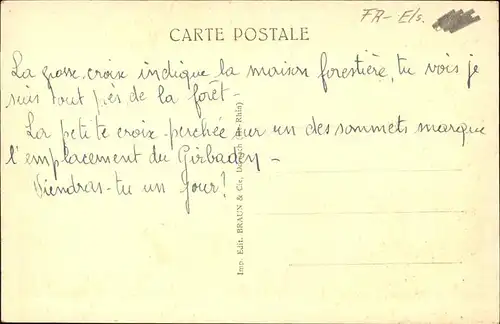 FR-Els.
CARTE POSTALE
La grosse croix indique la maison forestière, tu vois je
suis tout près de la forêt -
La petite croix perchée sur un des sommets marque
l'emplacement du Girbaden -
Viendras-tu un jour!
Imp. Edit. BRAUN & Cie, Dornach (Ht-Rhin)